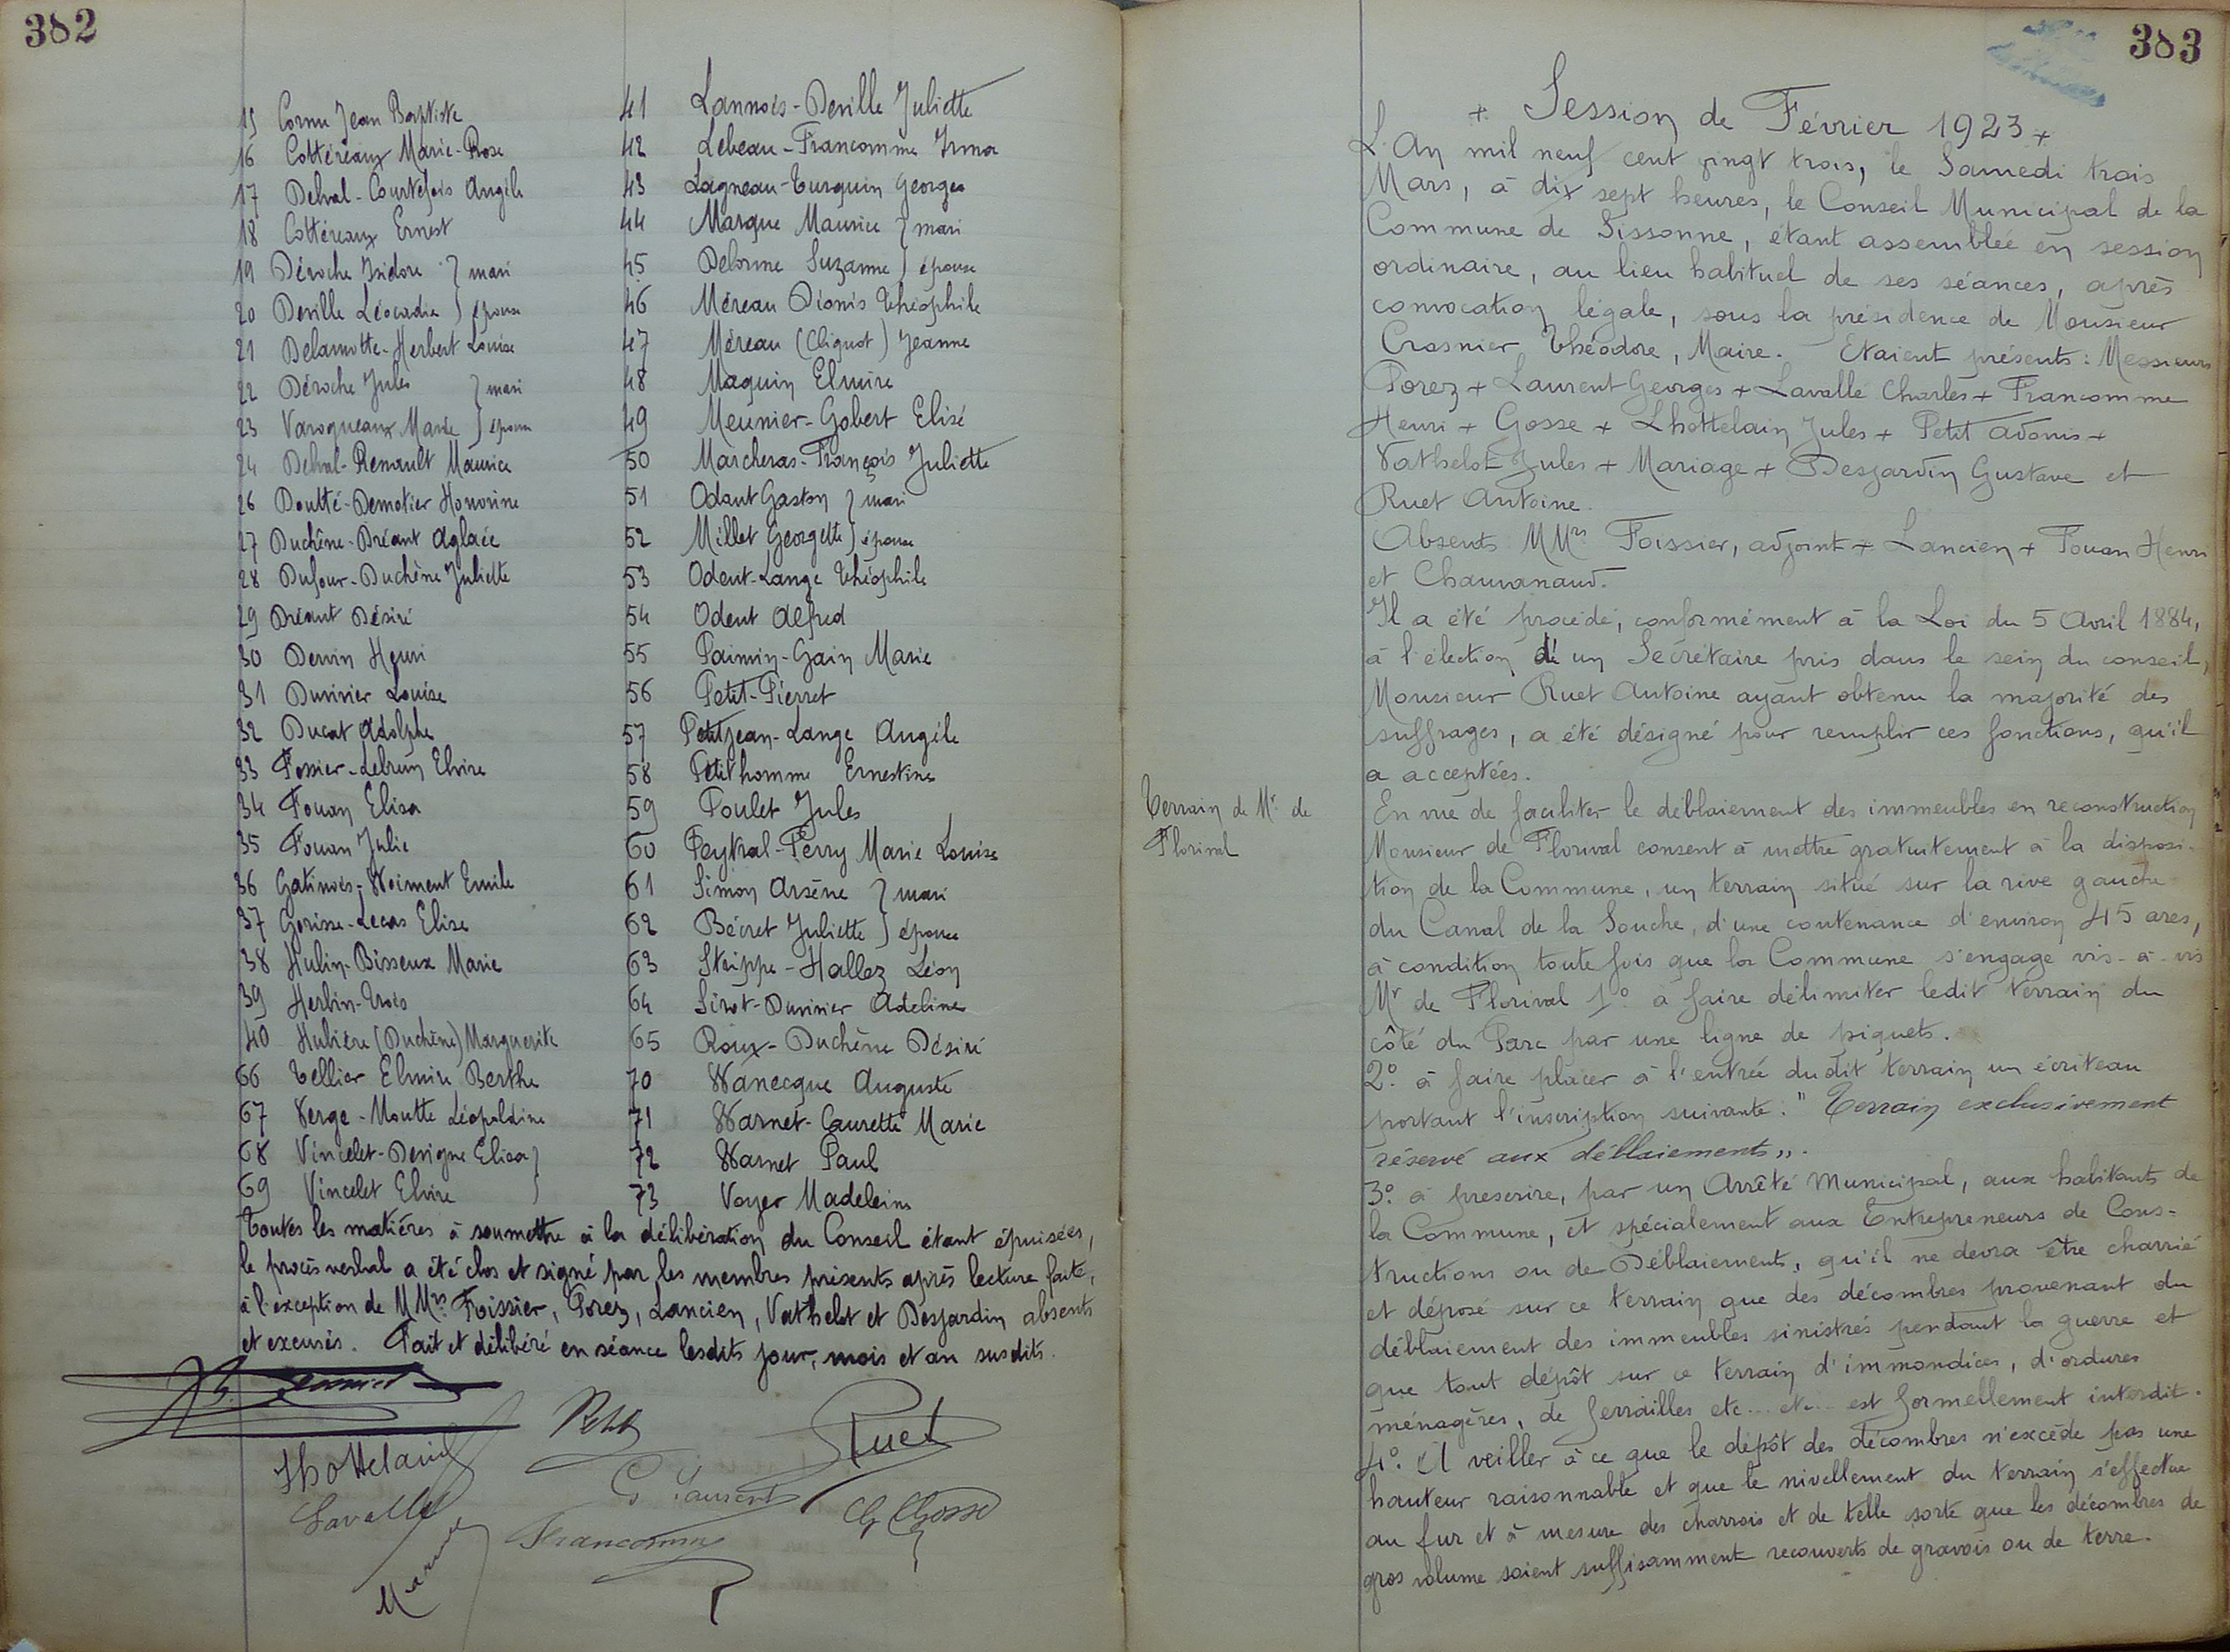 382
15 Cornu Jean Baptiste
16 Cottéreaux Marie-Rose
17 Delval-Courtefois Angèle
18 Cottéreaux Ernest
19 Déroche Isidore } mari
20 Deville Léocadie } épouse
21 Delamotte-Herbert Louise
22 Déroche Jules } mari
23 Varoqueaux Marie } épouse
24 Delval-Renault Maurice
26 Doutté-Demotier Honorine
27 Duchêne-Dréant Aglaée
28 Dufour-Duchêne Juliette
29 Dréant Désiré
30 Dervin Henri
31 Duvivier Louise
32 Ducat Adolphe
33 Fossier-Lebrun Elvire
34 Fouan Elisa
35 Fouan Julie
36 Gatinois-Woiment Emile
37 Gorisse-Lecas Elise
38 Hulin-Bisseux Marie
39 Herbin-Trois
40 Hubière (Duchêne) Marguerite
66 Tellier Elmire Berthe
67 Verge-Moutte Léopoldine
68 Vincelet-Devigne Elisa }
69 Vincelet Elvire }
41 Lannois-Deville Juliette
42 Lebeau-Francomme Irma
43 Lagneau-Turquin Georges
44 Marque Maurice } mari
45 Delorme Suzanne } épouse
46 Méreau Dionis Théophile
47 Méreau (Cliquot) Jeanne
48 Maquin Elmire
49 Meunier-Gobert Elisé
50 Marcheras-François Juliette
51 Odant Gaston } mari
52 Millet Georgette } épouse
53 Odent-Lange Théophile
54 Odent Alfred
55 Paimin-Gain Marie
56 Petit-Pierret
57 Petitjean-Lange Angèle
58 Petithomme Ernestine
59 Poulet Jules
60 Peytral-Perry Marie Louise
61 Simon Arsène } mari
62 Bécret Juliette } épouse
63 Steippe-Hallez Léon
64 Sirot-Duvivier Adeline
65 Roux-Duchêne Désiré
70 Wanecque Auguste
71 Warnet-Caurette Marie
72 Warnet Paul
73 Voyer Madeleine
Toutes les matières à soumettre à la délibération du Conseil étant épuisées,
le procès verbal a été clos et signé par les membres présents après lecture faite,
à l'exception de MMrs Foissier, Porez, Lancien, Vathelot et Desjardin absents
et excusés. Fait et délibéré en séance lesdits jour, mois et an susdits.
Petit
Ruet
Lhottelain
G Laurent
Lavallé
Francomme
G Gosse
383
+ Session de Février 1923 +
L'An mil neuf cent vingt trois, le Samedi trois
Mars, à dix sept heures, le Conseil Municipal de la
Commune de Sissonne, étant assemblée en session
ordinaire, au lieu habituel de ses séances, après
convocation légale, sous la présidence de Monsieur
Crasnier Théodore, Maire. Etaient présents : Messieurs
Porez + Laurent Georges + Lavallé Charles + Francomme
Henri + Gosse + Lhottelain Jules + Petit Adonis +
Vathelot Jules + Mariage + Desjardin Gustave et
Ruet Antoine.
Absents MMrs Foissier, adjoint + Lancien + Fouan Henri
et Chauvanaud.
Il a été procédé, conformément à la Loi du 5 Avril 1884,
à l'élection d'un Secrétaire pris dans le sein du conseil,
Monsieur Ruet Antoine ayant obtenu la majorité des
suffrages, a été désigné pour remplir ces fonctions, qu'il
a acceptées.
Terrain de Mr de
Florival
En vue de faciliter le déblaiement des immeubles en reconstruction
Monsieur de Florival consent à mettre gratuitement à la disposi-
tion de la Commune, un terrain situé sur la rive gauche
du Canal de la Souche, d'une contenance d'environ 45 ares,
à condition toute fois que la Commune s'engage vis-à-vis
Mr de Florival 1º à faire délimiter ledit terrain du
côté du Parc par une ligne de piquets.
2º à faire placer à l'entrée dudit terrain un écriteau
portant l'inscription suivante : " Terrain exclusivement
réservé aux déblaiements ".
3º à prescrire, par un Arrêté Municipal, aux habitants de
la Commune, et spécialement aux Entrepreneurs de Cons-
tructions ou de Déblaiements, qu'il ne devra être charrié
et déposé sur ce terrain que des décombres provenant du
déblaiement des immeubles sinistrés pendant la guerre et
que tout dépôt sur ce terrain d'immondices, d'ordures
ménagères, de ferrailles etc... etc... est formellement interdit.
4º A veiller à ce que le dépôt des décombres n'excède pas une
hauteur raisonnable et que le nivellement du terrain s'effectue
au fur et à mesure des charrois et de telle sorte que les décombres de
gros volume soient suffisamment recouverts de gravois ou de terre.